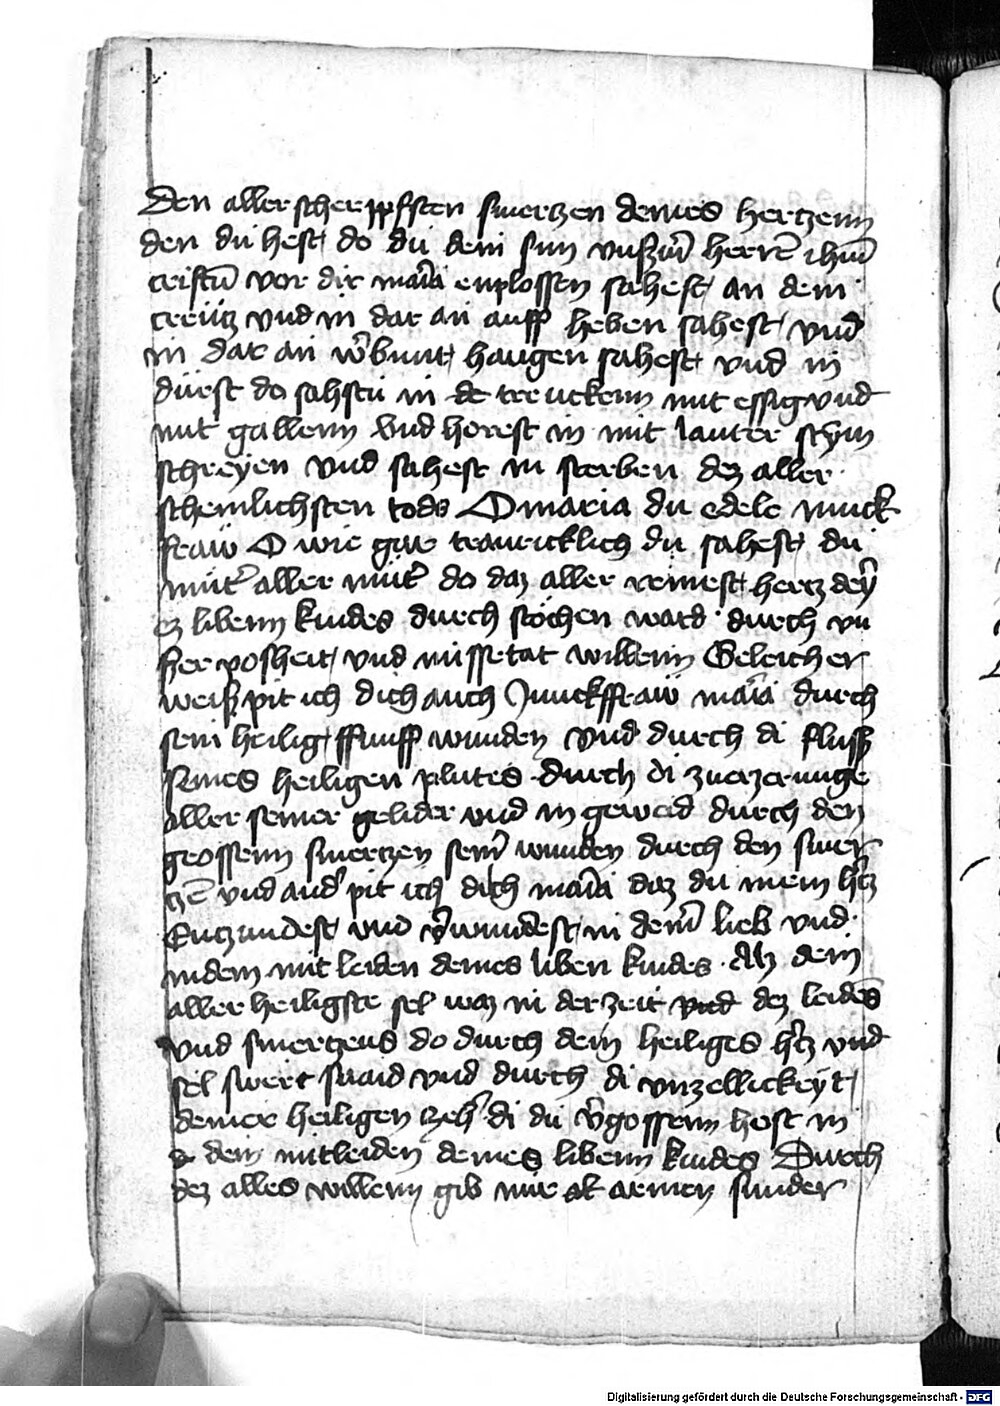 Den aller scherppfsten smertzen deines hertzenn
den du hest do du dein sun vnßerñ herrē ihm̄
cristū vor dir maīa enplossen sahest an dem
creütz vnd in dar an auff heben sahest vnd
in dar an v̄bunt hangen sahest vnd in
dürst do sahstu in de trenckenn mit essig vnd
mit gallenn Vnd horest in mit lauter stym
schreyen vnd sahest in sterben dez aller
schemlichsten tods O maria du edele iunck
fraw O wie gar trauricklich du sahest du
müt̄ aller müt̄ do daz aller reinest hertz deÿ
ez libenn kindes durch stochen ward durch vn
ßer posheit vnd missetat willenn Geleicher
weiß pit ich dich auch Junckffraw maīa durch
sein heilig ffunff wunden vnd durch di fluss
seines heiligen plutes durch di zuerzerunge
aller seiner gelider vnd in geweid durch den
grossenn smertzen seiñ wunden durch den smer
tzē vnd and̄ pit ich dich maīa daz du mein h̄tz
Entzundest vnd v̄wundest in deiñ lieb vnd
in dem mit leiden deines liben kindes Alz dein
aller heiligste sel waz in der zeit vnd dez leidēs
vnd smertzens do durch dein heiliges h̄tz vnd
sel swert snaid vnd durch di vnzellickeÿt
deiner heiligen zeh̄ di du v̄gossenn host in
dein mitleiden deines libenn kindes Durch
dez alles willenn gib mir armen sunder
Digitalisierung gefördert durch die Deutsche Forschungsgemeinschaft - DFG